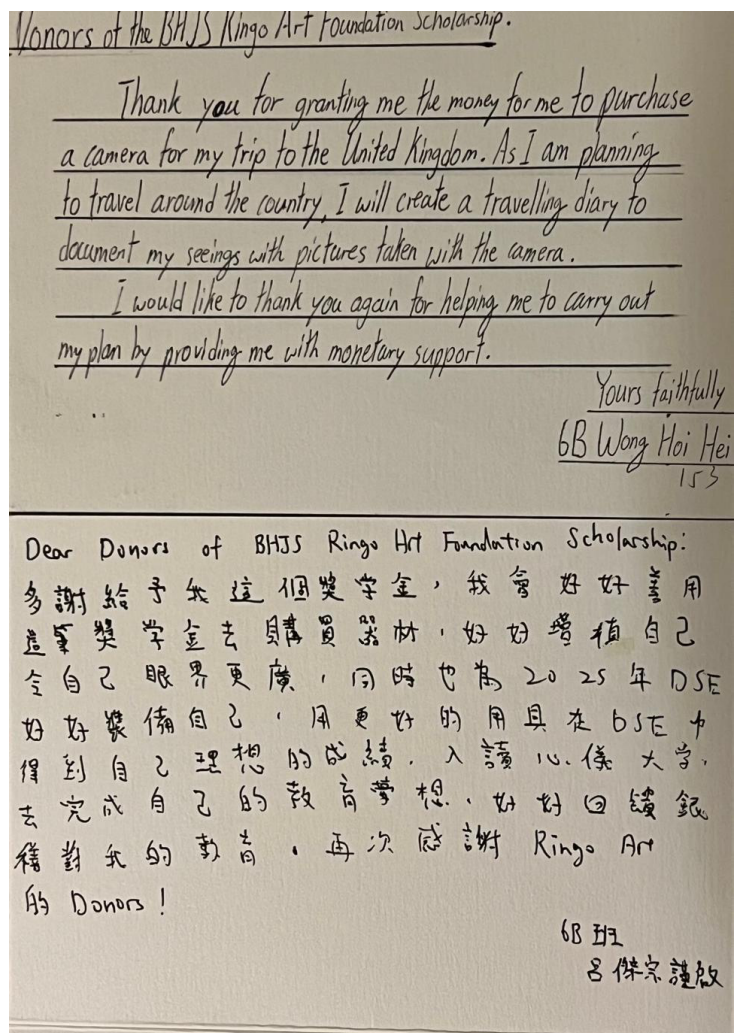 Donors of the BHJS Ringo Art Foundation Scholarship.
Thank you for granting me the money for me to purchase
a camera for my trip to the United Kingdom. As I am planning
to travel around the country, I will create a travelling diary to
document my seeings with pictures taken with the camera.
I would like to thank you again for helping me to carry out
my plan by providing me with monetary support.
Yours faithfully
6B Wong Hoi Hei
153
Dear Donors of BHJS Ringo Art Foundation Scholarship:
多謝給予我這個獎学金,我會好好善用
這筆獎学金去購買器材,好好增值自己
令自己眼界更廣,同時也為2025年DSE
好好裝備自己,用更好的用具在DSE中
得到自己理想的成績,入讀心儀大学,
去完成自己的教育夢想,好好回饋銀
禧對我的教育。再次感謝 Ringo Art
的 Donors!
6B班
呂傑宗謹啟